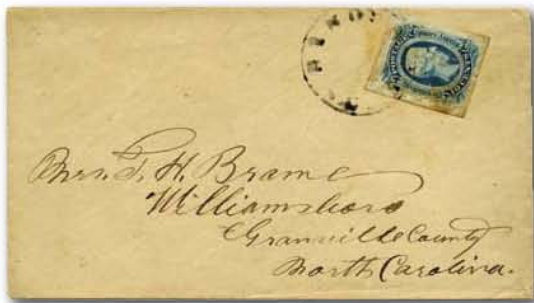 Mrs. T. H. Brame
Williamsboro
Granville County
North Carolina.